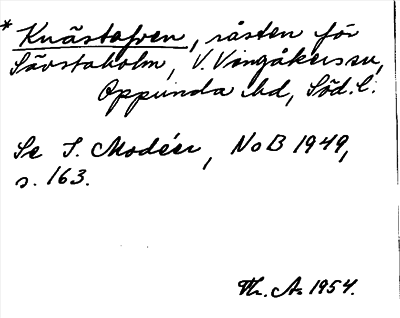 * Knästafven, råsten för
Sävstaholm, V. Vingåkers sn,
Oppunda hd, Söd. l.
Se I. Modéer, NoB 1949,
s. 163.
Th. A. 1954.